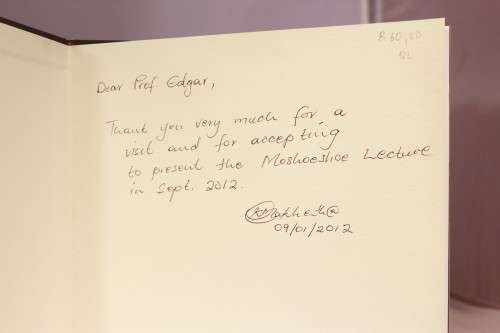 Dear Prof. Edgar,
Thank you very much for a
visit and for accepting
to present the Moshoeshoe Lecture
in Sept. 2012.
09/01/2012